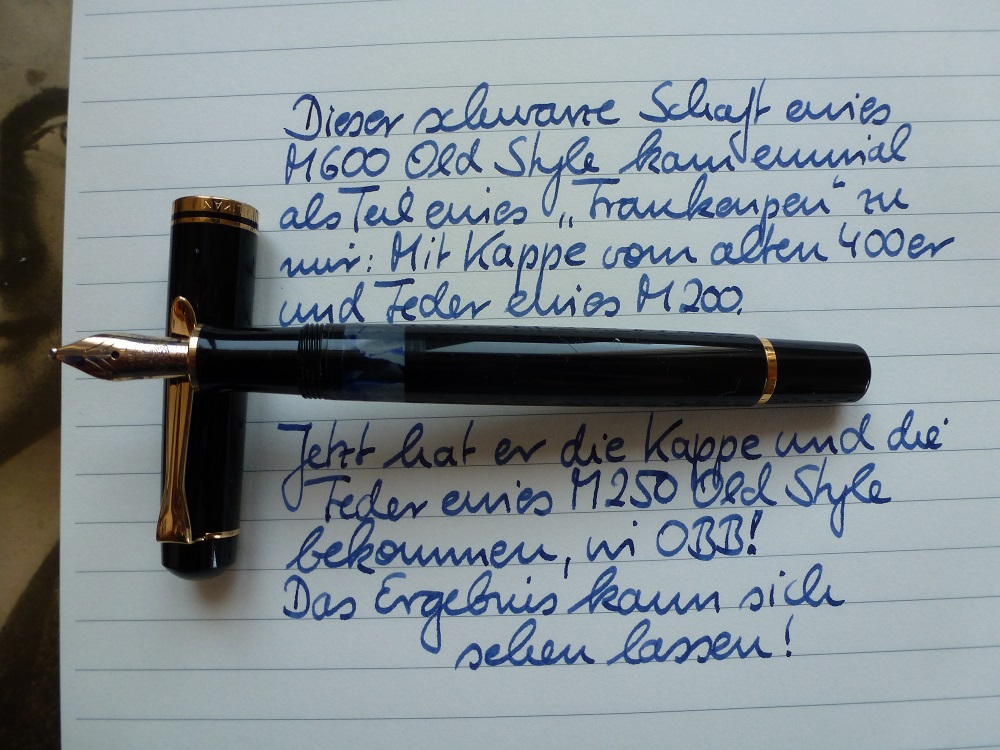 Dieser schwarze Schaft eines
M600 Old Style kam einmal
als Teil eines „Frankenpen“ zu
mir: Mit Kappe vom alten 400er
und Feder eines M200.
Jetzt hat er die Kappe und die
Feder eines M250 Old Style
bekommen, in OBB!
Das Ergebnis kann sich
sehen lassen!